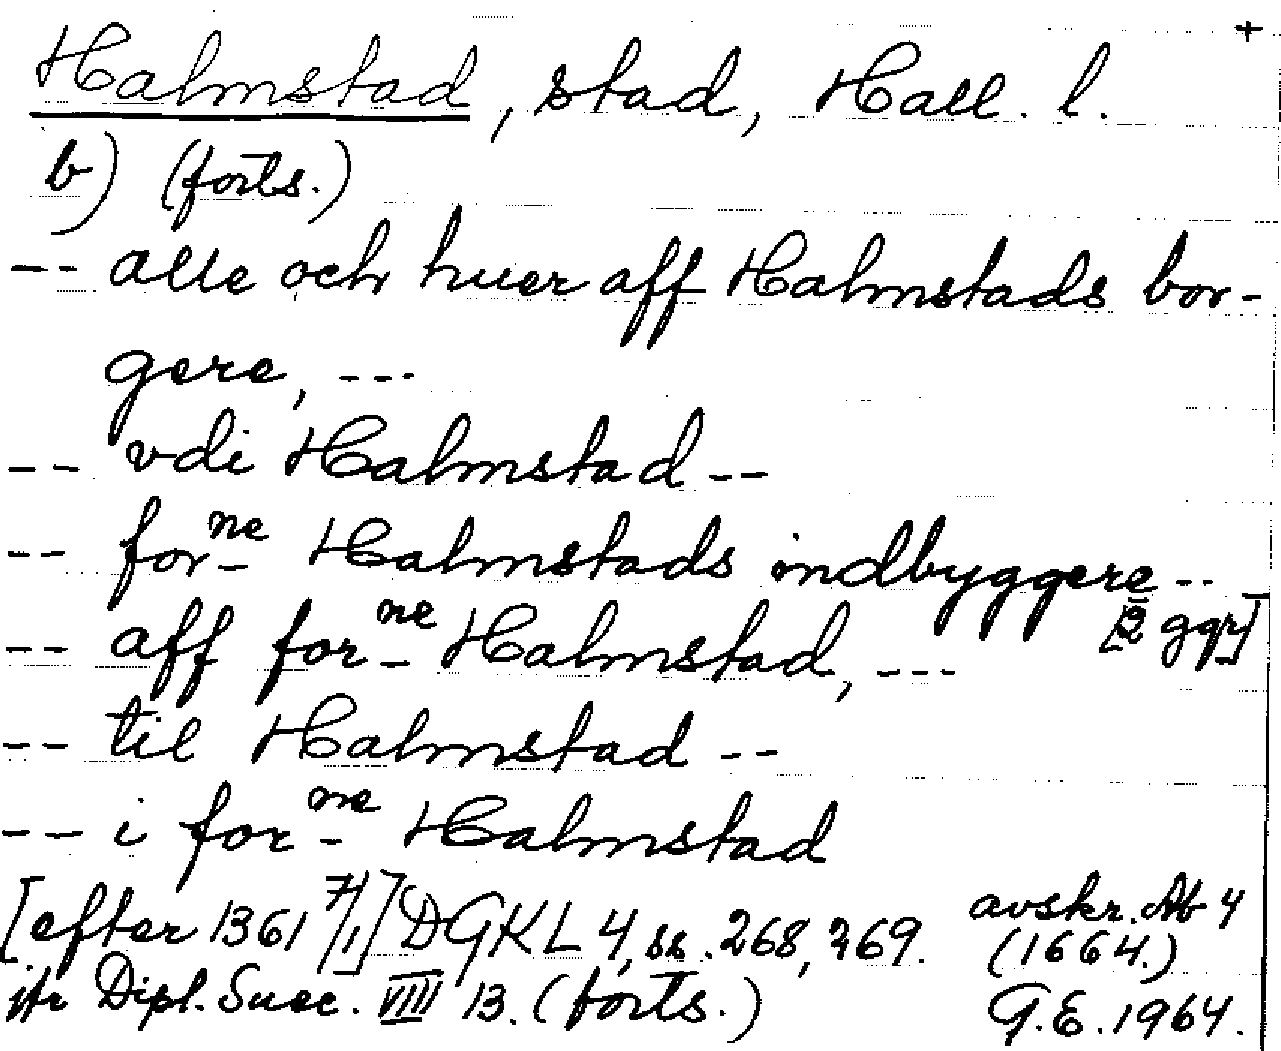 +
Halmstad, stad, Hall. l.
b) (forts.)
-- alle och huer aff Halmstads bor-
gere, ---
-- vdi Halmstad --
-- forne Halmstads indbyggere --
[2 ggr]
-- aff forne Halmstad, ---
-- til Halmstad --
-- i forne Halmstad
[efter 1361 7/1] DGKL 4, ss. 268, 269. avskr. Ab 4
(1664.)
jfr Dipl. Suec. VIII 13. (forts.) G.E. 1964.